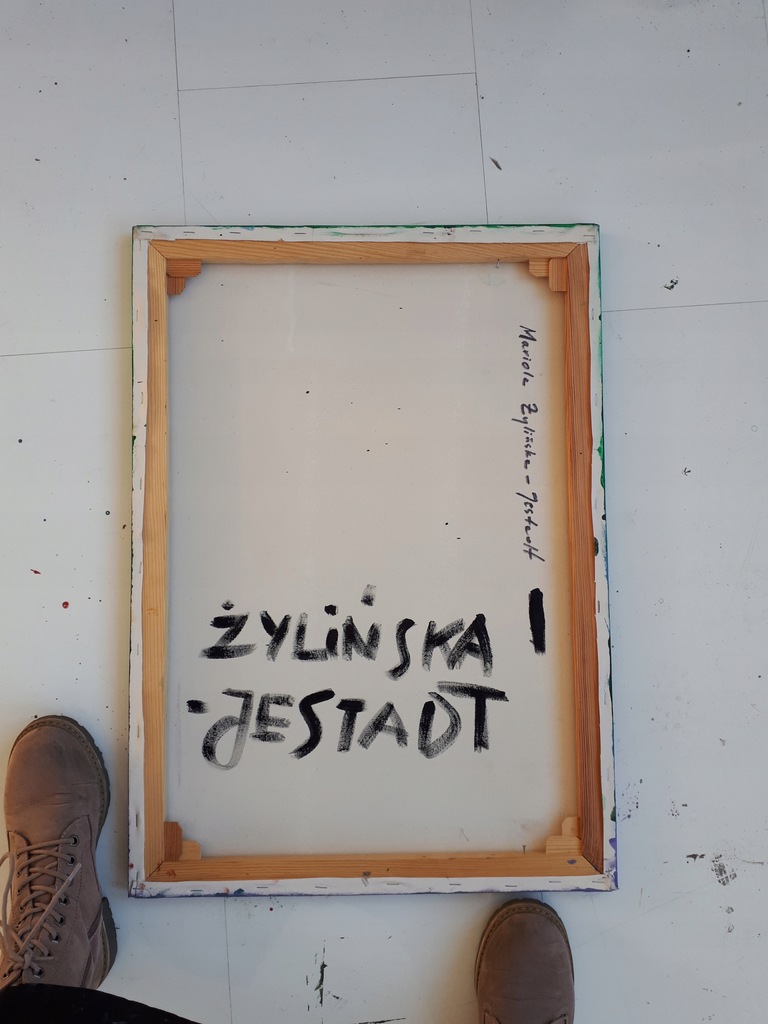 Mariola Żylińska - Jestadt
ŻYLIŃSKA
-JESTADT